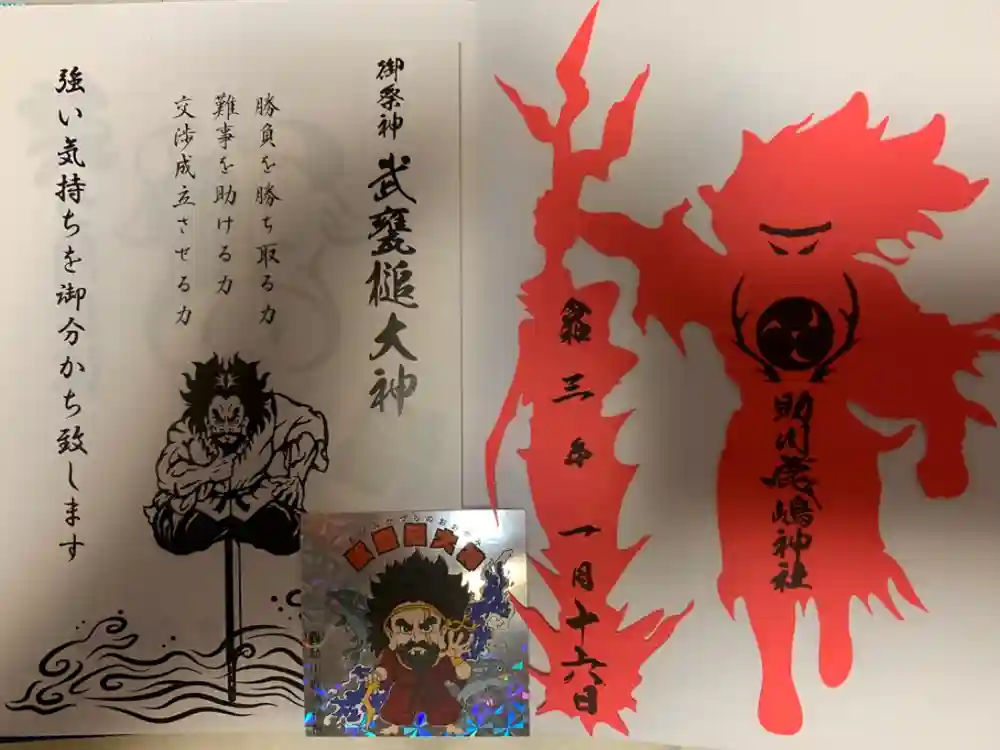 御祭神 武甕槌大神
勝負を勝ち取る力
難事を助ける力
交渉成立させる力
強い気持ちを御分かち致します
助川鹿嶋神社
三年 一月十六日